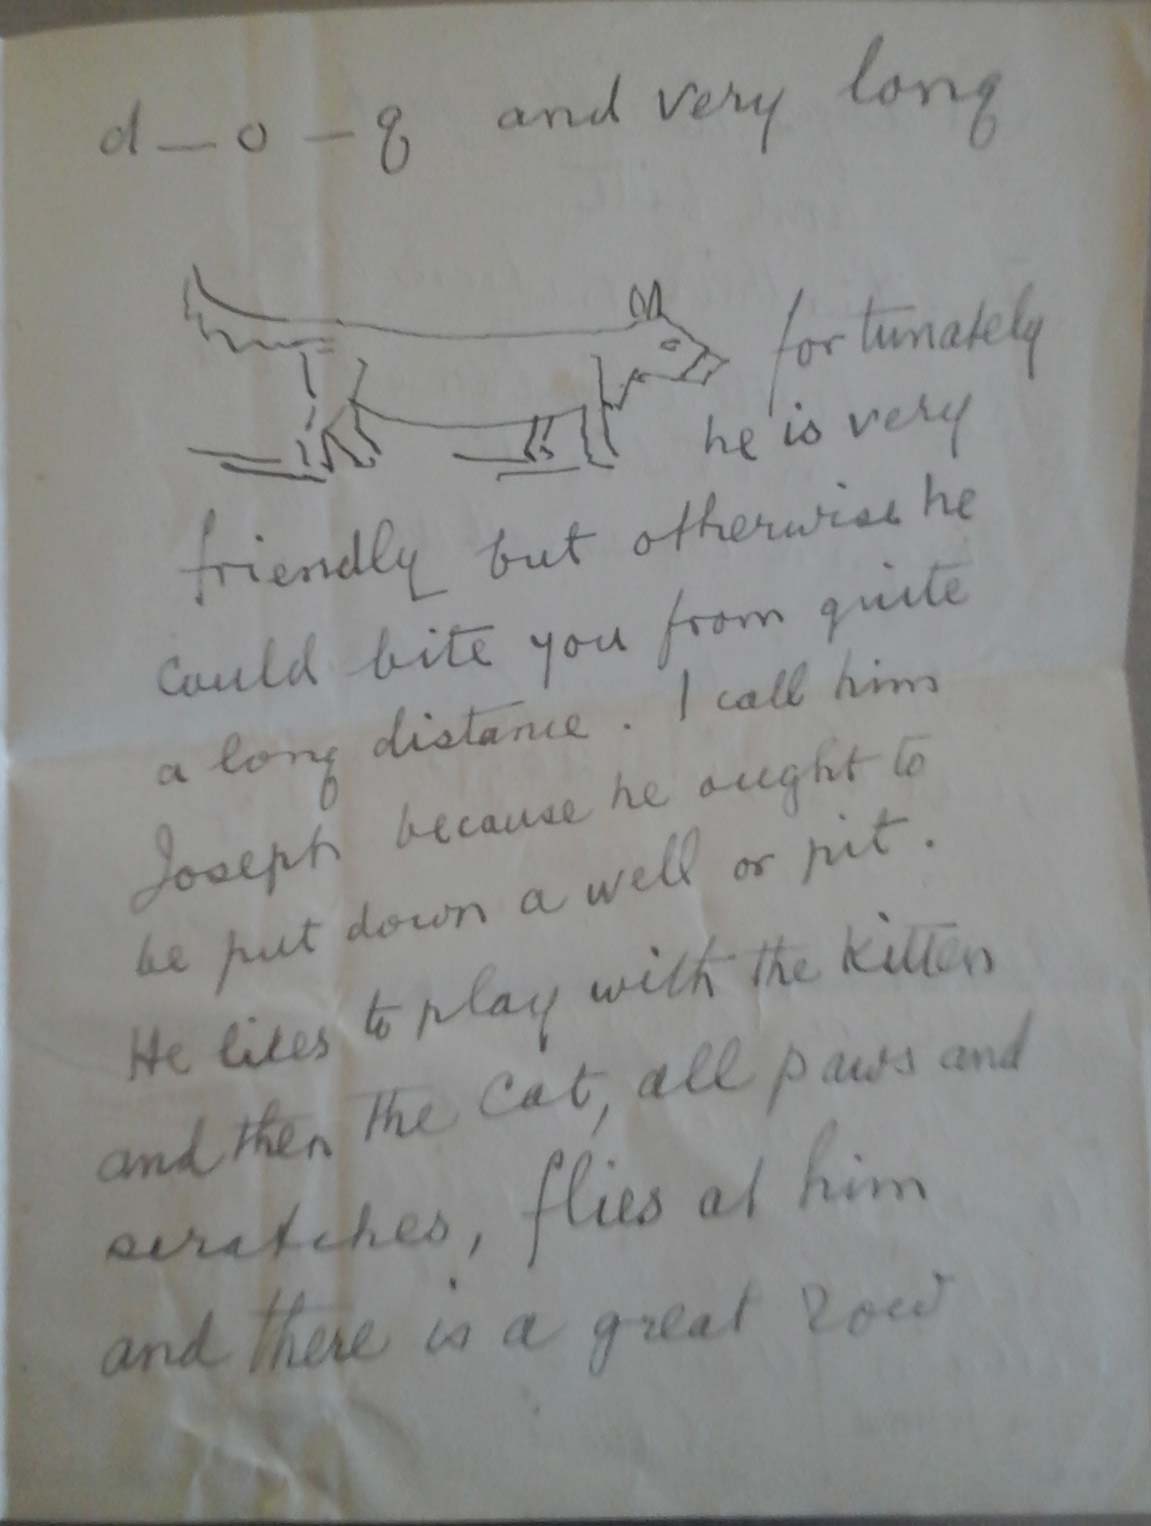 d — o — g and very long
fortunately
he is very
friendly but otherwise he
could bite you from quite
a long distance. I call him
Joseph because he ought to
be put down a well or pit.
He likes to play with the kitten
and then the cat, all paws and
scratches, flies at him
and there is a great row